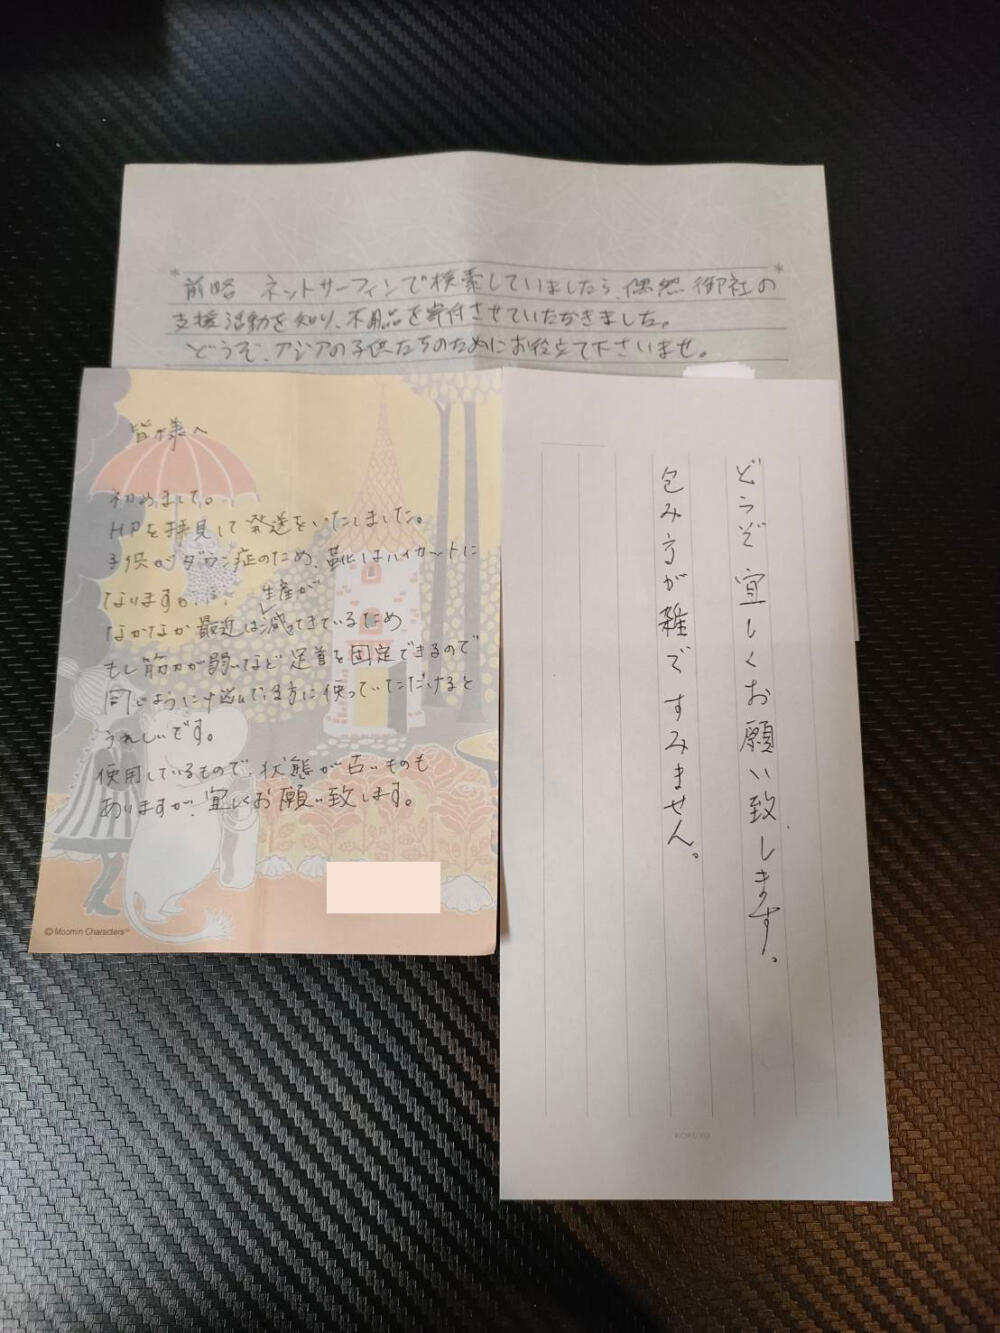 前略 ネットサーフィンで検索していましたら、偶然御社の
支援活動を知り、不用品を寄付させていただきました。
どうぞ、アジアの子供たちのためにお役立て下さいませ。
皆様へ
初めまして。
HPを拝見して発送をいたしました。
子供がダウン症のため、靴はハイカットに
なりますが、
なかなか最近は生産が減ってきているため
もし筋力が弱いなど足首を固定できるので
同じように悩んでいる方に使っていただけると
うれしいです。
使用しているもので、状態が古いものも
ありますが、宜しくお願い致します。
© Moomin Characters™
どうぞ宜しくお願い致します。
包み方が雑ですみません。
KOKUYO